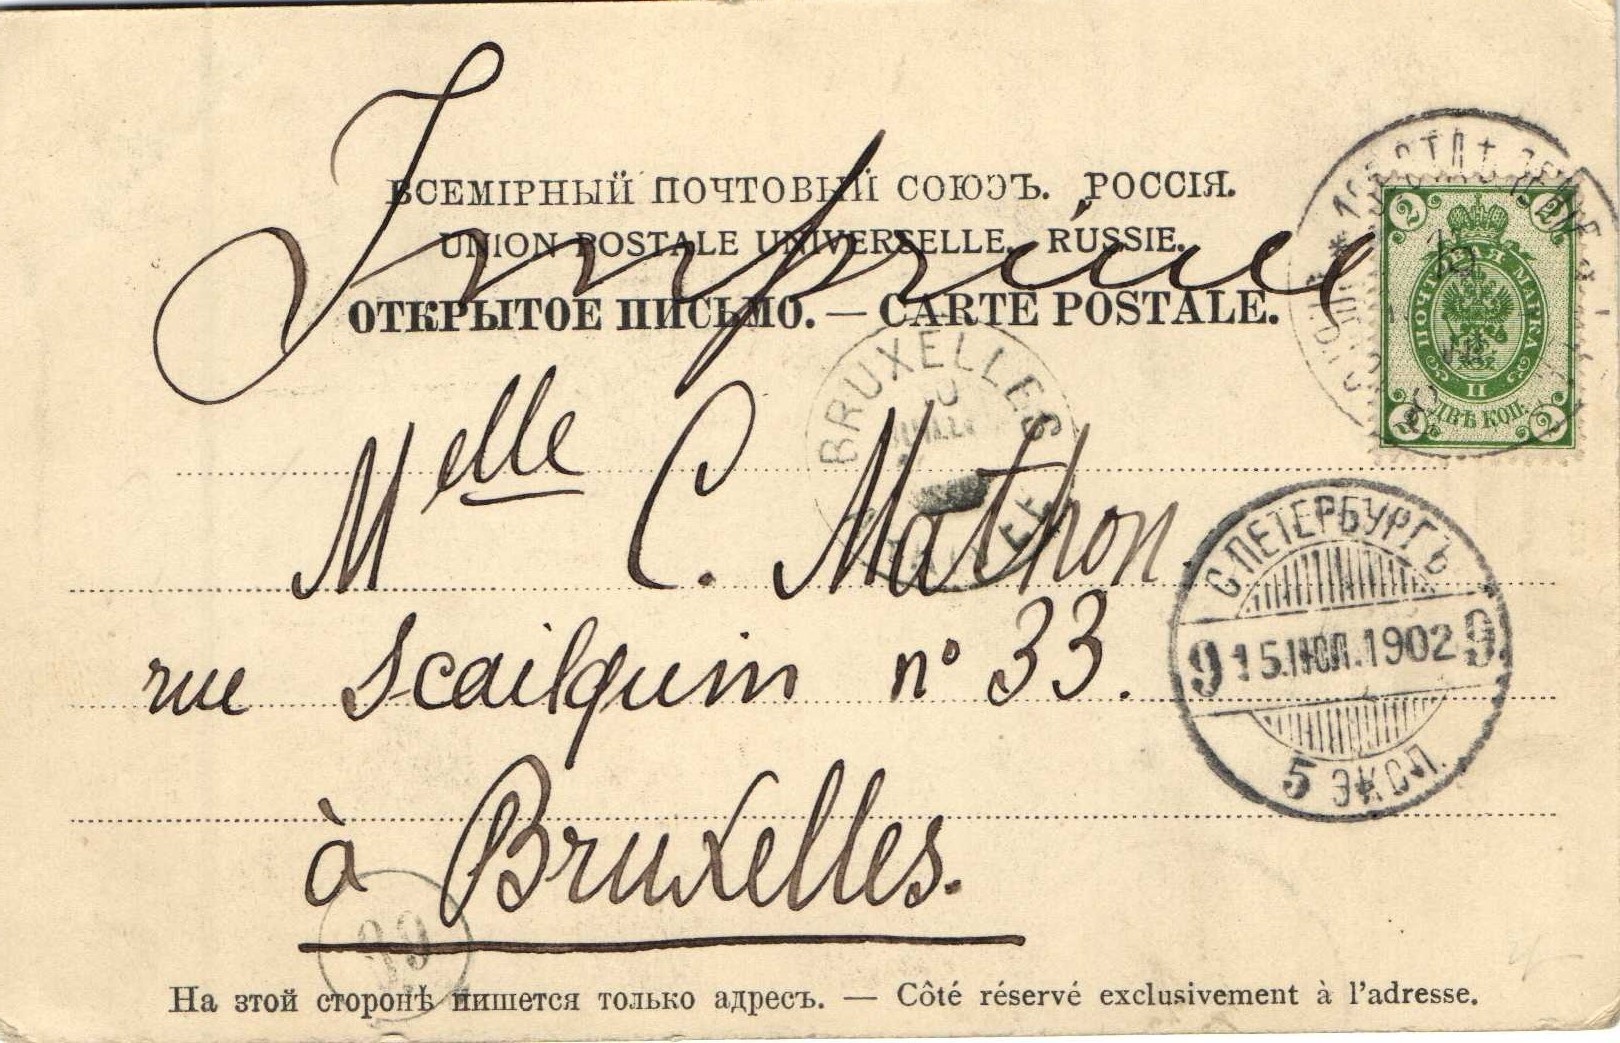 ВСЕМІРНЫЙ ПОЧТОВЫЙ СОЮЗЪ. РОССІЯ.
UNION POSTALE UNIVERSELLE. RUSSIE.
Imprimé
ОТКРЫТОЕ ПИСЬМО. — CARTE POSTALE.
2 2
ПОЧТОВАЯ МАРКА
II
ДВѢ КОП.
2 2
BRUXELLES
Melle C. Mathon.
rue Scailquin n° 33.
à Bruxelles.
С.ПЕТЕРБУРГЪ
9 15.ІЮЛ.1902 9
5 ЭКСП.
На зтой сторонѣ пишется только адресъ. — Côté réservé exclusivement à l'adresse.